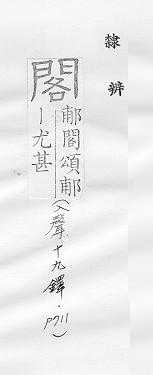 隸辨
閣
郙閣頌郙
丨尤甚
(入聲十九鐸·P711)